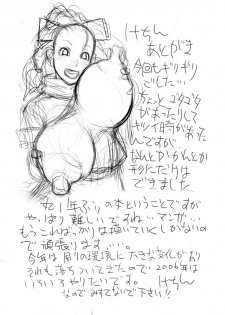 けちん
あとがき
今回もギリギリ
でした…
ちょっとゴタゴタ
があったりして
キツイ時があった
んですが、
なんとかかんとか
形にだけは
できました。
だ11年ぶりの本ということですが
やっぱり難しいですね…マンガ…
もうこればっかりは描いていくしかないの
で頑張ります…。
今年は周りの環境に大きな変化があり
それも落ちついてきたので2006年は
いろいろやりたいです。
なのでみすてないで下さい!!
けちん